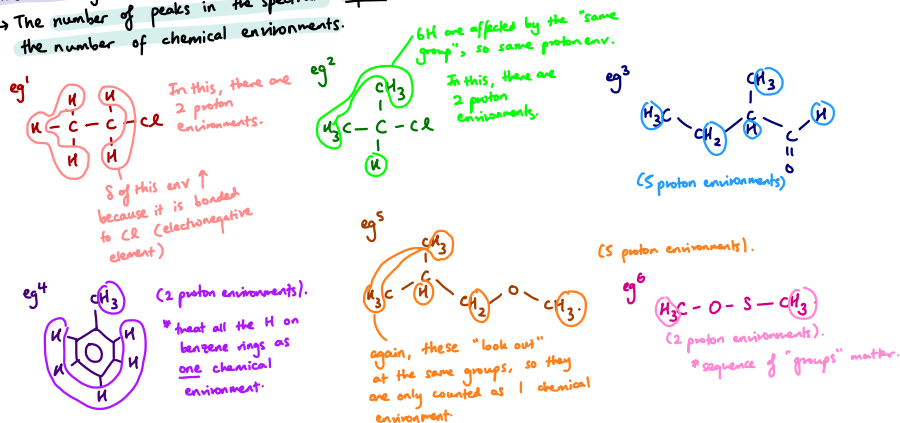 → The number of peaks in the
the number of chemical environments.
eg1
H H
H - C - C - Cl
H H
In this, there are
2 proton
environments.
δ of this env ↑
because it is bonded
to Cl (electronegative
element)
eg2
6H are affected by the "same
group", so same proton env.
CH3
H3C - C - Cl
H
In this, there are
2 proton
environments.
eg3
CH3
H3C
CH2
H
C
H
O
(5 proton environments)
eg4
CH3
H H
H H
H
(2 proton environments).
* treat all the H on
benzene rings as
one chemical
environment.
eg5
CH3
H3C C
H
CH2
O
CH3.
again, these "look out"
at the same groups, so they
are only counted as 1 chemical
environment.
(5 proton environments).
eg6
H3C - O - S - CH3.
(2 proton environments).
* sequence of "groups" matter.